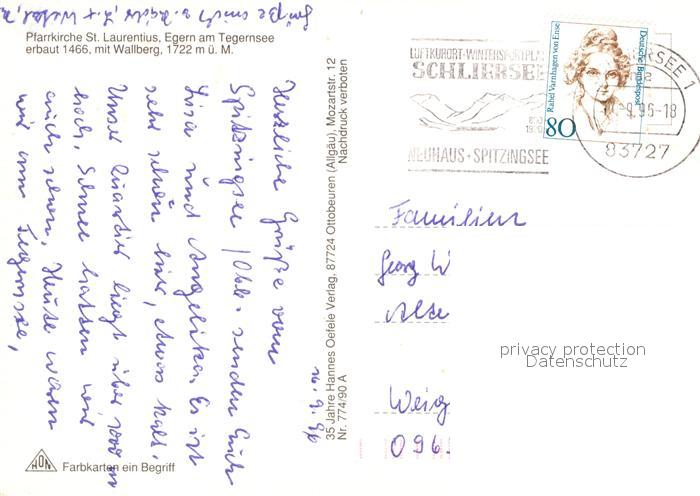 Grüße auch a.
Pfarrkirche St. Laurentius, Egern am Tegernsee
erbaut 1466, mit Wallberg, 1722 m ü. M.
Herzliche Grüße vom
Spitzingsee /Obb. senden Euch
Lisa und Angelika. Es ist
sehr schön hier, etwas kalt.
Unser Quartier liegt über 1000 m
hoch. Schnee hatten wir
auch schon. Heute waren
wir am Tegernsee.
16.9.96
HON Farbkarten ein Begriff
35 Jahre Hannes Oefele Verlag, 87724 Ottobeuren (Allgäu), Mozartstr. 12
Nr. 774/90 A Nachdruck verboten
LUFTKURORT-WINTERSPORTPLATZ
SCHLIERSEE
NEUHAUS+SPITZINGSEE
Rahel Varnhagen von Ense
Deutsche Bundespost
80
ERSEE 1
.9.96-18
83727
Familien
Georg W
Alte
Weig
096.
privacy protection
Datenschutz